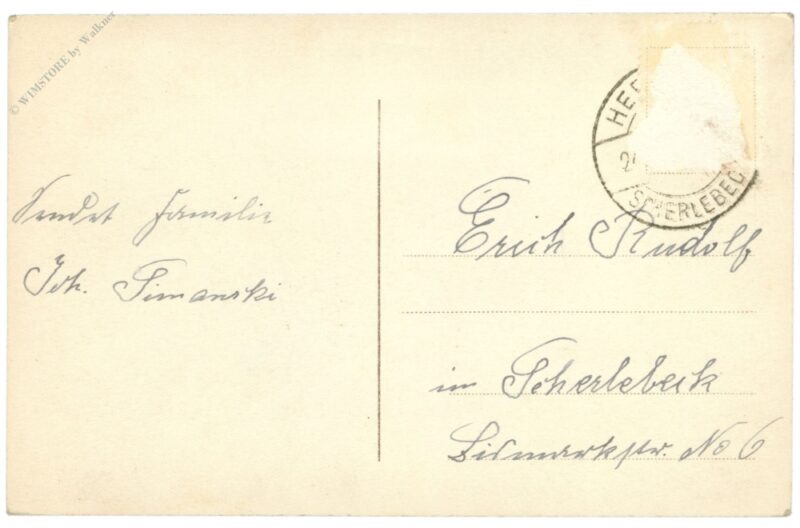 © WIMSTORE by Walkner
SCHERLEBECK
Sendet Familie
Joh. Simanski
Erich Rudolf
in Scherlebeck
Bismarkstr. No 6